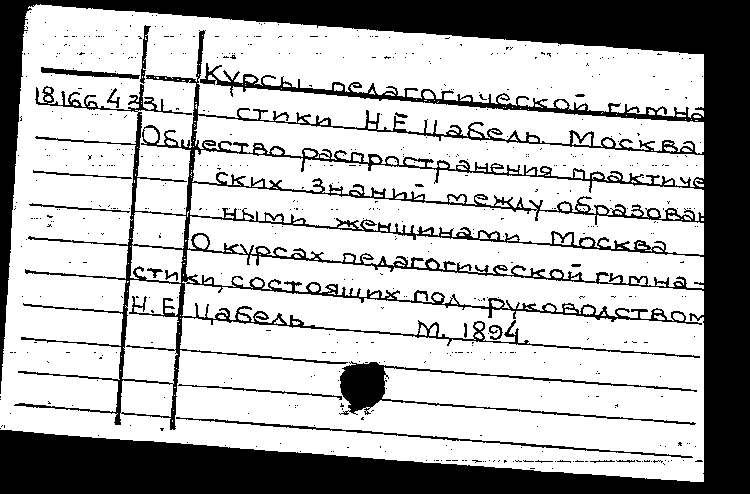 Курсы педагогической гимна
18.166.4.231. стики Н.Е. Цабель. Москва.
Общество распространения практиче
ских знаний между образован
ными женщинами. Москва.
О курсах педагогической гимна-
стики, состоящих под руководством
Н.Е. Цабель. М., 1894.